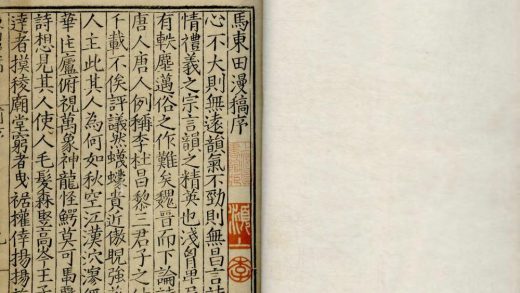 馬東田漫稿序
心不大則無遠韻氣不勁則無昌言詩
情禮義之宗言韻之精英也淺
有軼塵邁俗之作難矣魏晉而下論詩
唐人唐人例稱李杜昌黎三君子之
千載不俟評議然蟻蠓貴近傲睨強
人主此其人為何如秋空江漢泬寥
華崖廬俯視萬象神龍怪鰐莫可
詩想見其人使人毛髮森豎高岑王
達者摸稜廟堂窮者曳裾權倖揚揚